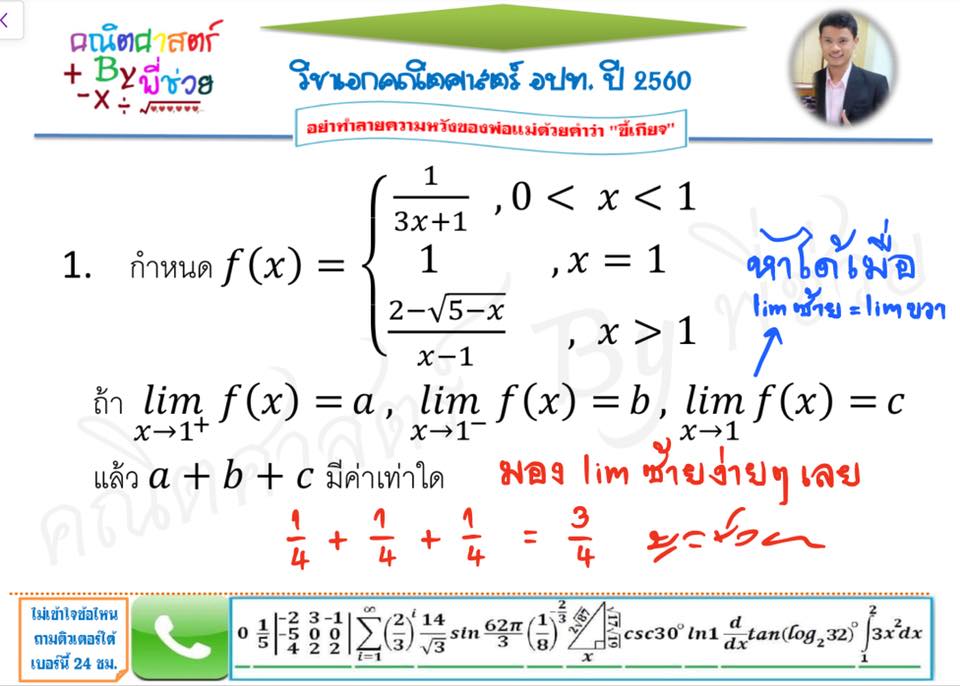 คณิตศาสตร์
+ By พี่ช่วย
- × ÷ √
วิชาเอกคณิตศาสตร์ อปท. ปี 2560
อย่าทำลายความหวังของพ่อแม่ด้วยคำว่า "ขี้เกียจ"
1. กำหนด f(x) = { 1/(3x+1) , 0 < x < 1
1 , x = 1
(2−√(5−x))/(x−1) , x > 1
หาได้เมื่อ
lim ซ้าย = lim ขวา
ถ้า lim x→1⁺ f(x) = a , lim x→1⁻ f(x) = b , lim x→1 f(x) = c
แล้ว a + b + c มีค่าเท่าใด
มอง lim ซ้ายง่ายๆ เลย
1/4 + 1/4 + 1/4 = 3/4
คณิตศาสตร์ By พี่ช่วย
ไม่เข้าใจข้อไหน
ถามติวเตอร์ได้
เบอร์นี้ 24 ชม.
0 1/5 |−2 3 −1; −5 0 0; 4 2 2| ∑ i=1 ∞ (2/3)^i 14/√3 sin 62π/3 (1/8)^(−2/3) x csc30° ln1 d/dx tan(log₂32)° ∫₁² 3x²dx